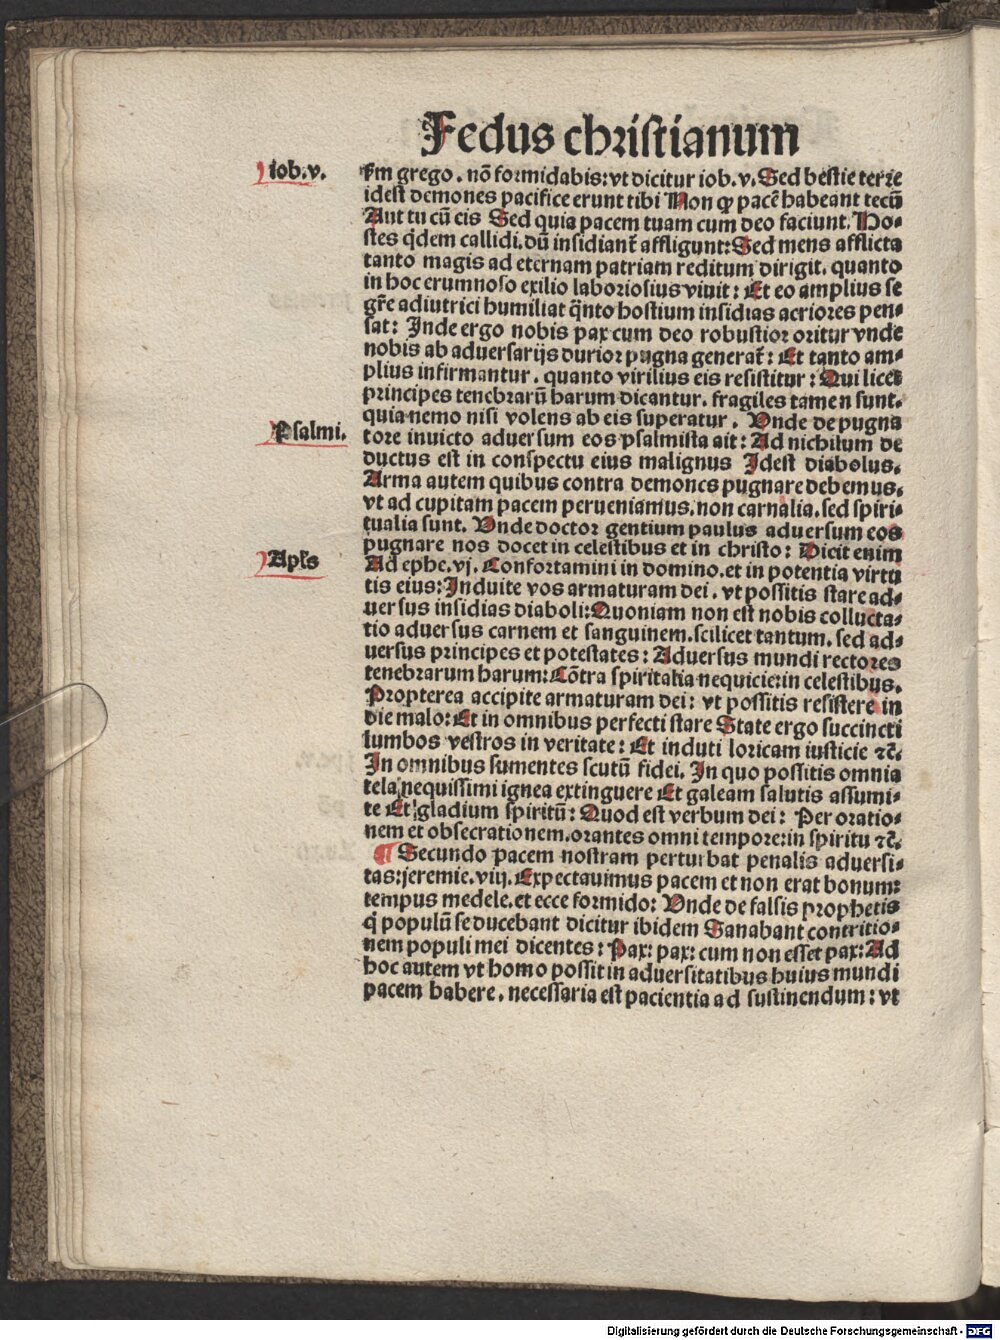 Fedus christianum
iob.v.
ẜm grego. nō formidabis: vt dicitur iob. v. Sed bestie terre
idest demones pacifice erunt tibi Non ꝙ pacē habeant tecū
Aut tu cū eis Sed quia pacem tuam cum deo faciunt. Ho-
stes q̄dem callidi. dū insidiant̄ affligunt: Sed mens afflicta
tanto magis ad eternam patriam reditum dirigit. quanto
in hoc erumnoso exilio laboriosius viuit: Et eo amplius se
gr̄e adiutrici humiliat q̄nto hostium insidias acriores pen-
sat: Inde ergo nobis pax cum deo robustior oritur vnde
nobis ab aduersarijs durior pugna generat̄: Et tanto am-
plius infirmantur. quanto virilius eis resistitur: Qui licet
principes tenebrarū harum dicantur. fragiles tamen sunt.
quia nemo nisi volens ab eis superatur. Vnde de pugna
Psalmi.
tore inuicto aduersum eos psalmista ait: Ad nichilum de
ductus est in conspectu eius malignus Idest diabolus.
Arma autem quibus contra demones pugnare debemus.
vt ad cupitam pacem perueniamus. non carnalia. sed spiri-
tualia sunt. Vnde doctor gentium paulus aduersum eos
pugnare nos docet in celestibus et in christo: Dicit enim
Apl̄s
Ad ephe. vj. Confortamini in domino. et in potentia virtu
tis eius: Induite vos armaturam dei. vt possitis stare ad-
uersus insidias diaboli: Quoniam non est nobis collucta-
tio aduersus carnem et sanguinem. scilicet tantum. sed ad-
uersus principes et potestates: Aduersus mundi rectores
tenebrarum harum: Cōtra spiritalia nequicie: in celestibus.
Propterea accipite armaturam dei: vt possitis resistere in
die malo: Et in omnibus perfecti stare State ergo succincti
lumbos vestros in veritate: Et induti loricam iusticie ⁊c̄.
In omnibus sumentes scutū fidei. In quo possitis omnia
tela nequissimi ignea extinguere Et galeam salutis assumi-
te Et gladium spiritū: Quod est verbum dei: Per oratio-
nem et obsecrationem. orantes omni tempore: in spiritu ⁊c̄.
¶ Secundo pacem nostram perturbat penalis aduersi-
tas: jeremie. viij. Expectauimus pacem et non erat bonum:
tempus medele. et ecce formido: Vnde de falsis prophetis
q̄ populū seducebant dicitur ibidem Sanabant contritio-
nem populi mei dicentes: Pax: pax: cum non esset pax: Ad
hoc autem vt homo possit in aduersitatibus huius mundi
pacem habere. necessaria est pacientia ad sustinendum: vt
Digitalisierung gefördert durch die Deutsche Forschungsgemeinschaft - DFG